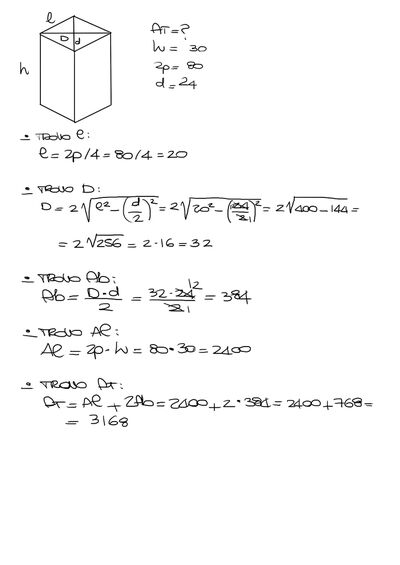 l
D d
h
AT = ?
h = 30
2p = 80
d = 24
• TROVO l:
l = 2p/4 = 80/4 = 20
• TROVO D:
D = 2√(l² - (d/2)²) = 2√(20² - (24/2 1)²) = 2√(400 - 144) =
= 2√256 = 2·16 = 32
• TROVO Ab:
Ab = D·d/2 = 32·24 12/2 1 = 384
• TROVO Al:
Al = 2p·h = 80·30 = 2400
• TROVO AT:
AT = Al + 2Ab = 2400 + 2·384 = 2400 + 768 =
= 3168